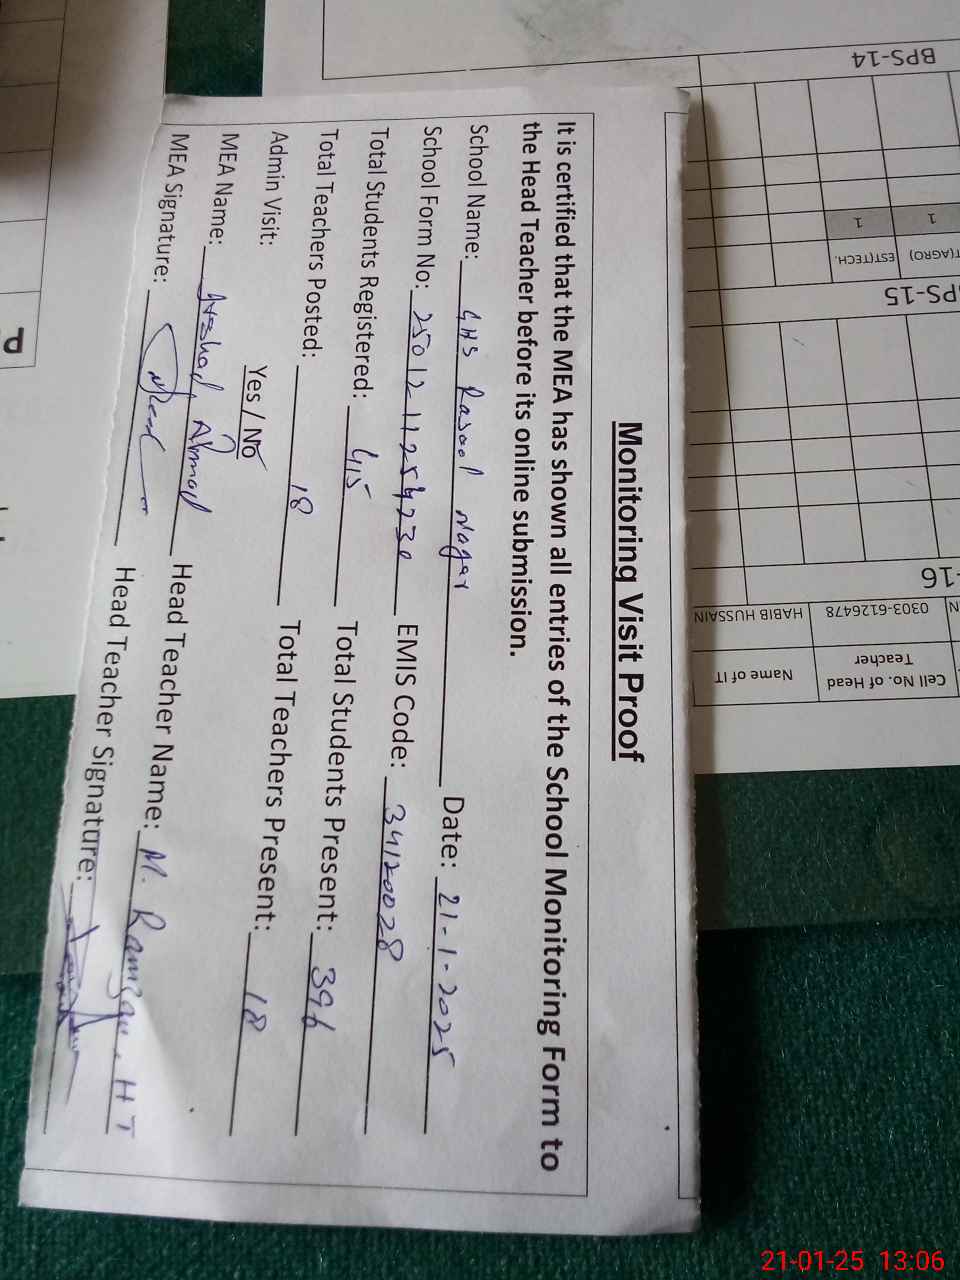 Monitoring Visit Proof
It is certified that the MEA has shown all entries of the School Monitoring Form to
the Head Teacher before its online submission.
School Name: GHS Rasool Nagar Date: 21-1-2025
School Form No: EMIS Code: 34120028
Total Students Registered: 415 Total Students Present: 396
Total Teachers Posted: 18 Total Teachers Present: 18
Admin Visit: Yes / No
MEA Name: Arshad Ahmad Head Teacher Name: M. Ramzan, HT
MEA Signature: Head Teacher Signature:
BPS-14
1
1
T(AGRO)
EST(TECH.
PS-15
-16
0303-6126478
HABIB HUSSAIN
Cell No. of Head
Teacher
Name of IT
P
21-01-25 13:06